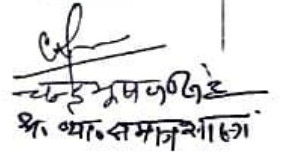 चन्द्रभूषण सिंह
श्र. व्या. समाजशास्त्र